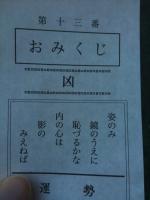 第十三番
おみくじ
凶
姿のみ
鏡のうえに
恥づるかな
内の心は
影の
みえねば
運勢